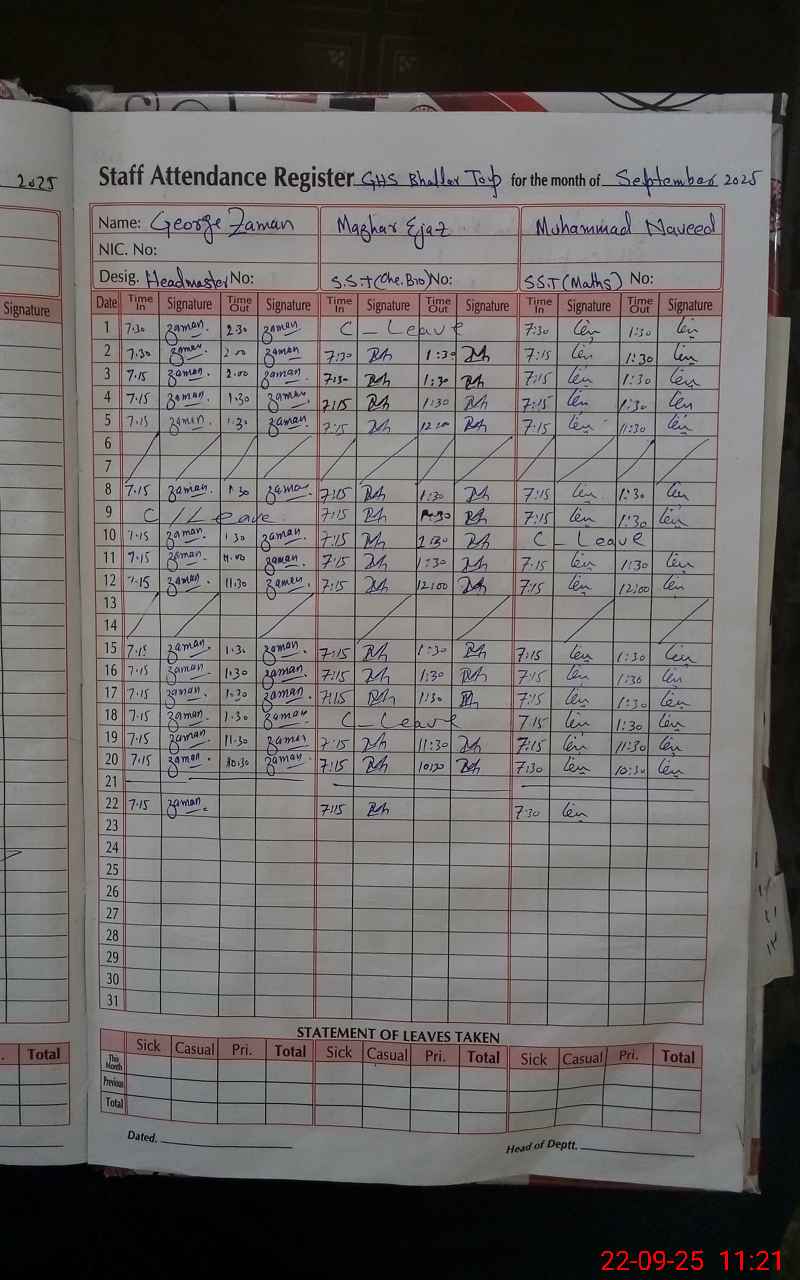 2025
Staff Attendance Register GHS Bhallar Top for the month of September 2025
Name: George Zaman Mazhar Ejaz Muhammad Naveed
NIC. No:
Desig. Headmaster No: S.S.T (Che.Bio) No: SS.T (Maths) No:
Signature
Date Time In Signature Time Out Signature Time In Signature Time Out Signature Time In Signature Time Out Signature
1 7.30 zaman. 2.30 zaman C - Leave 7:30 1:30
2 7.30 zaman 2.00 zaman 7:30 1:30 7:15 1:30
3 7.15 zaman. 2.00 zaman. 7:30 1:30 7:15 1:30
4 7.15 zaman. 1.30 zaman. 7:15 1:30 7:15 1:30
5 7.15 zaman. 1.30 zaman. 7:15 12:00 7:15 11:30
6
7
8 7.15 zaman. 1.30 zaman. 7:15 1:30 7:15 1:30
9 C / Leave. 7:15 1:30 7:15 1:30
10 7.15 zaman. 1.30 zaman. 7:15 1:30 C - Leave
11 7.15 zaman. zaman. 7:15 1:30 7:15 11:30
12 7.15 zaman. 11.30 zaman. 7:15 12:00 7:15 12:00
13
14
15 7.15 zaman. 1.30 zaman. 7:15 1:30 7:15 1:30
16 7.15 zaman. 1.30 zaman. 7:15 1:30 7:15 1:30
17 7.15 zaman. 1.30 zaman. 7:15 1:30 7:15 1:30
18 7.15 zaman. 1.30 zaman C - Leave 7:15 1:30
19 7.15 zaman. 11.30 zaman 7:15 11:30 7:15 11:30
20 7.15 zaman. 10:30 zaman. 7:15 10:30 7:30 10:30
21
22 7.15 zaman. 7:15 7:30
23
24
25
26
27
28
29
30
31
STATEMENT OF LEAVES TAKEN
. Total
Sick Casual Pri. Total Sick Casual Pri. Total Sick Casual Pri. Total
This Month
Previous
Total
Dated. Head of Deptt.
22-09-25 11:21